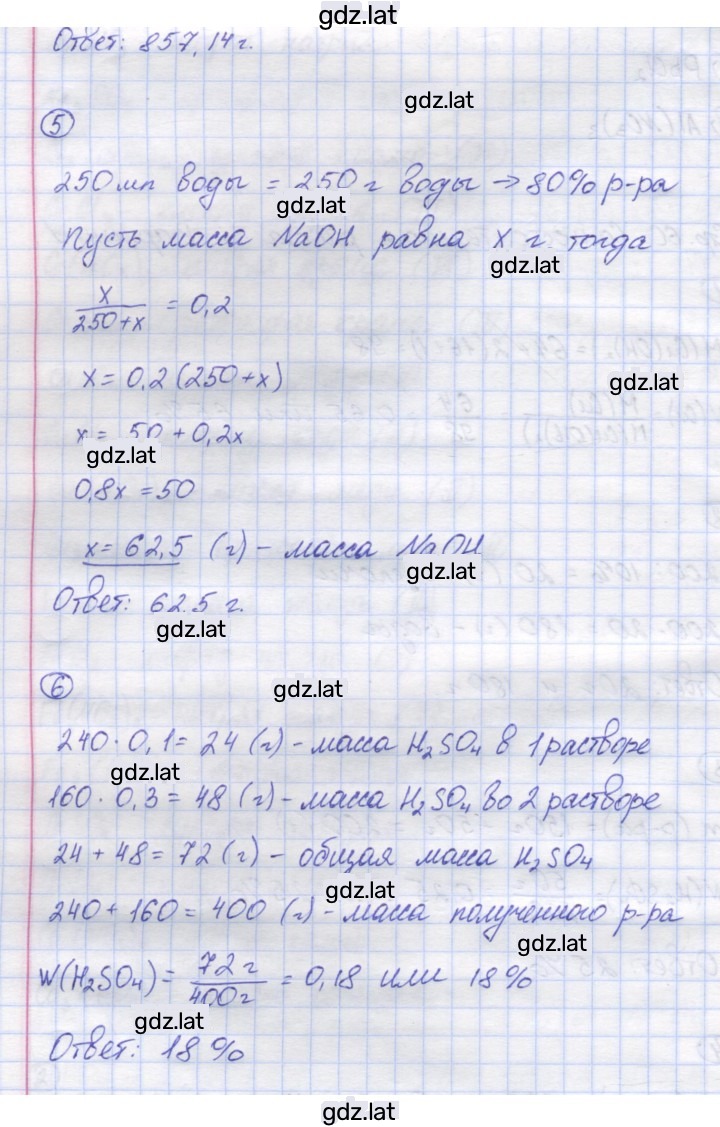 gdz.lat
Ответ: 857,14 г.
gdz.lat
5
250 мл воды = 250 г воды → 80% р-ра
gdz.lat
Пусть масса NaOH равна x г. тогда
gdz.lat
x/(250+x) = 0,2
x = 0,2(250+x)
gdz.lat
x = 50 + 0,2x
gdz.lat
0,8x = 50
x = 62,5 (г) - масса NaOH
gdz.lat
Ответ: 62,5 г.
gdz.lat
6
gdz.lat
240 · 0,1 = 24 (г) - масса H₂SO₄ в 1 растворе
gdz.lat
160 · 0,3 = 48 (г) - масса H₂SO₄ во 2 растворе
24 + 48 = 72 (г) - общая масса H₂SO₄
gdz.lat
240 + 160 = 400 (г) - масса полученного р-ра
gdz.lat
W(H₂SO₄) = 72 г/400 г = 0,18 или 18%
gdz.lat
Ответ: 18%
gdz.lat